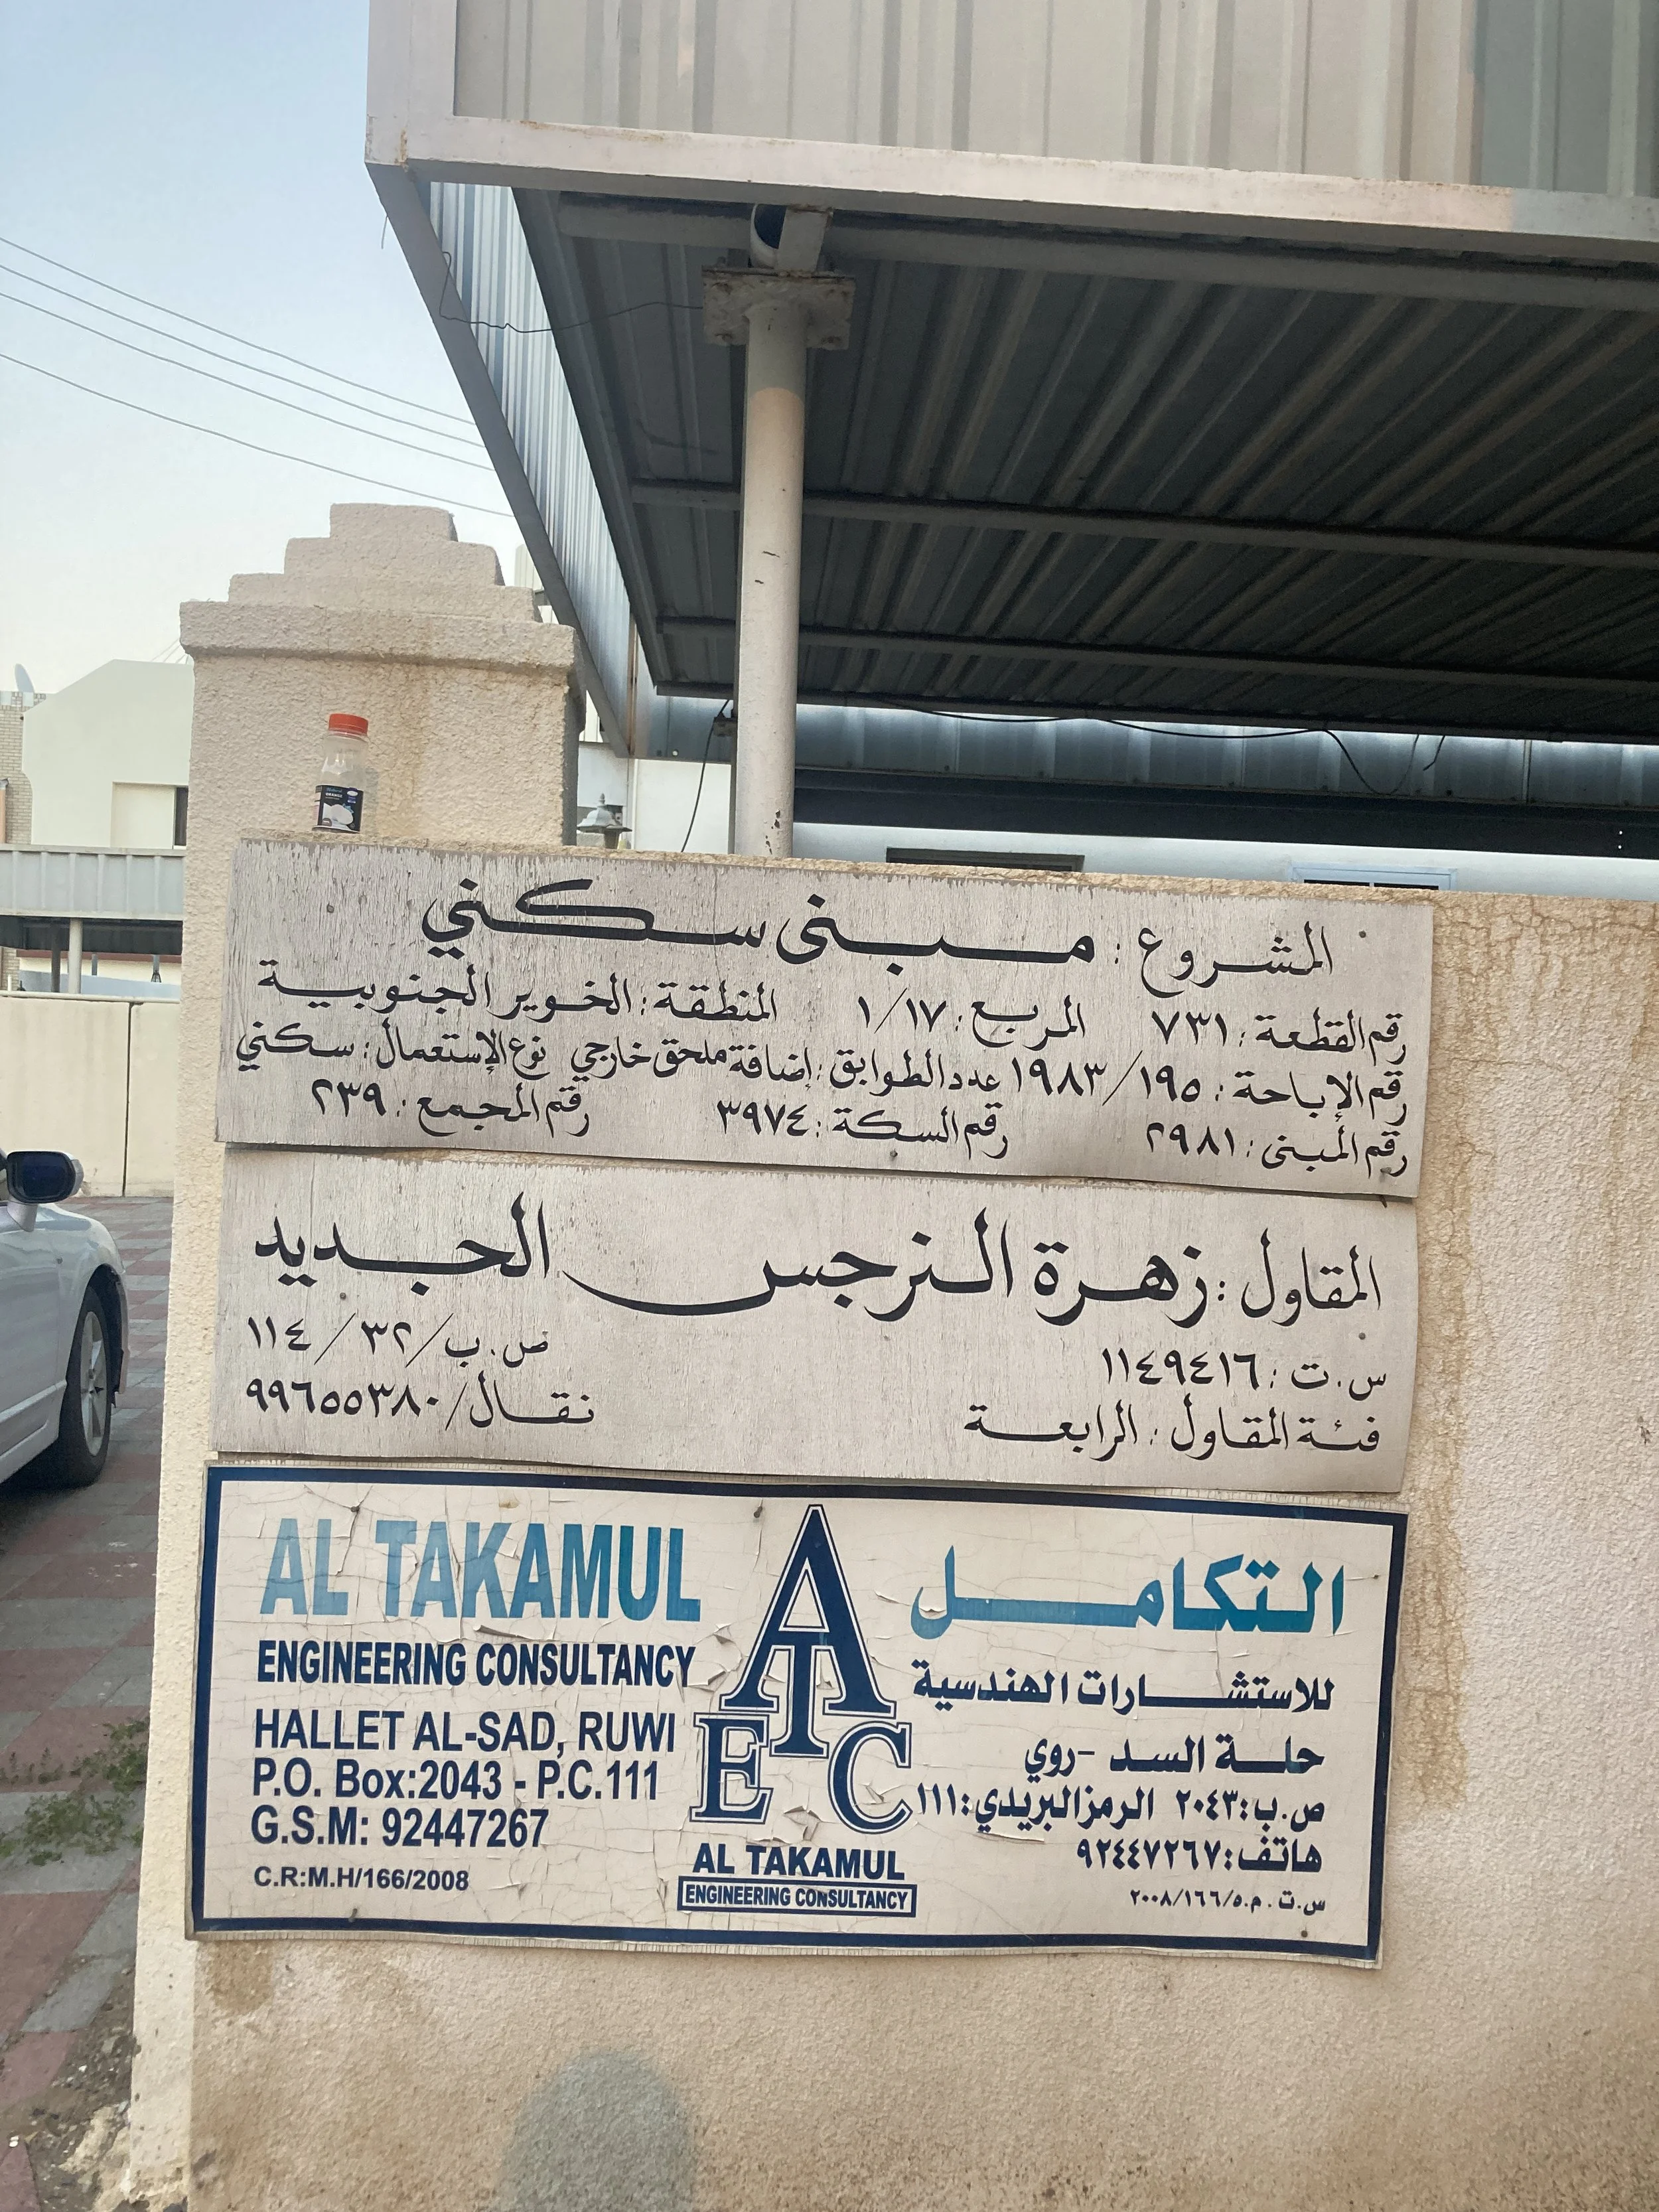 المشروع : مبنى سكني
رقم القطعة : ٧٣١ المربع : ١/١٧ المنطقة : الخوير الجنوبية
رقم الإباحة : ١٩٨٣/١٩٥ عدد الطوابق : إضافة ملحق خارجي نوع الإستعمال : سكني
رقم المبنى : ٢٩٨١ رقم السكة : ٣٩٧٤ رقم المجمع : ٢٣٩
المقاول : زهرة النرجس الجديد
س.ت : ١١٤٩٤١٦ ص.ب/٣٢/١١٤
فئة المقاول : الرابعة نقال/٩٩٦٥٥٣٨٠
AL TAKAMUL
ENGINEERING CONSULTANCY
HALLET AL-SAD, RUWI
P.O. Box:2043 - P.C.111
G.S.M: 92447267
C.R:M.H/166/2008
ATEC
AL TAKAMUL
ENGINEERING CONSULTANCY
التكامل
للاستشارات الهندسية
حلة السد -روي
ص.ب:٢٠٤٣ الرمز البريدي:١١١
هاتف:٩٢٤٤٧٢٦٧
س.ت.م.٥/١٦٦/٢٠٠٨